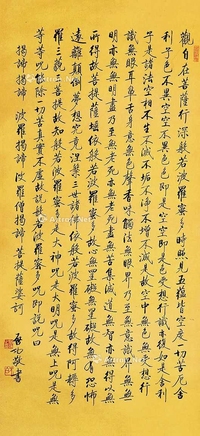 觀自在菩薩行深般若波羅蜜多時照見五蘊皆空度一切苦厄舍
利子色不異空空不異色色即是空空即是色受想行識亦復如是舍利
子是諸法空相不生不滅不垢不淨不增不減是故空中無色無受想行
識無眼耳鼻舌身意無色聲香味觸法無眼界乃至無意識界無無
明亦無無明盡乃至無老死亦無老死盡無苦集滅道無智亦無得以無
所得故菩提薩埵依般若波羅蜜多故心無罣礙無罣礙故無有恐怖
遠離顛倒夢想究竟涅槃三世諸佛依般若波羅蜜多故得阿耨多
羅三藐三菩提故知般若波羅蜜多是大神咒是大明咒是無上咒是無
等等咒能除一切苦真實不虛故說般若波羅蜜多咒即說咒曰
揭諦揭諦 波羅揭諦 波羅僧揭諦 菩提薩婆訶
啓功敬書